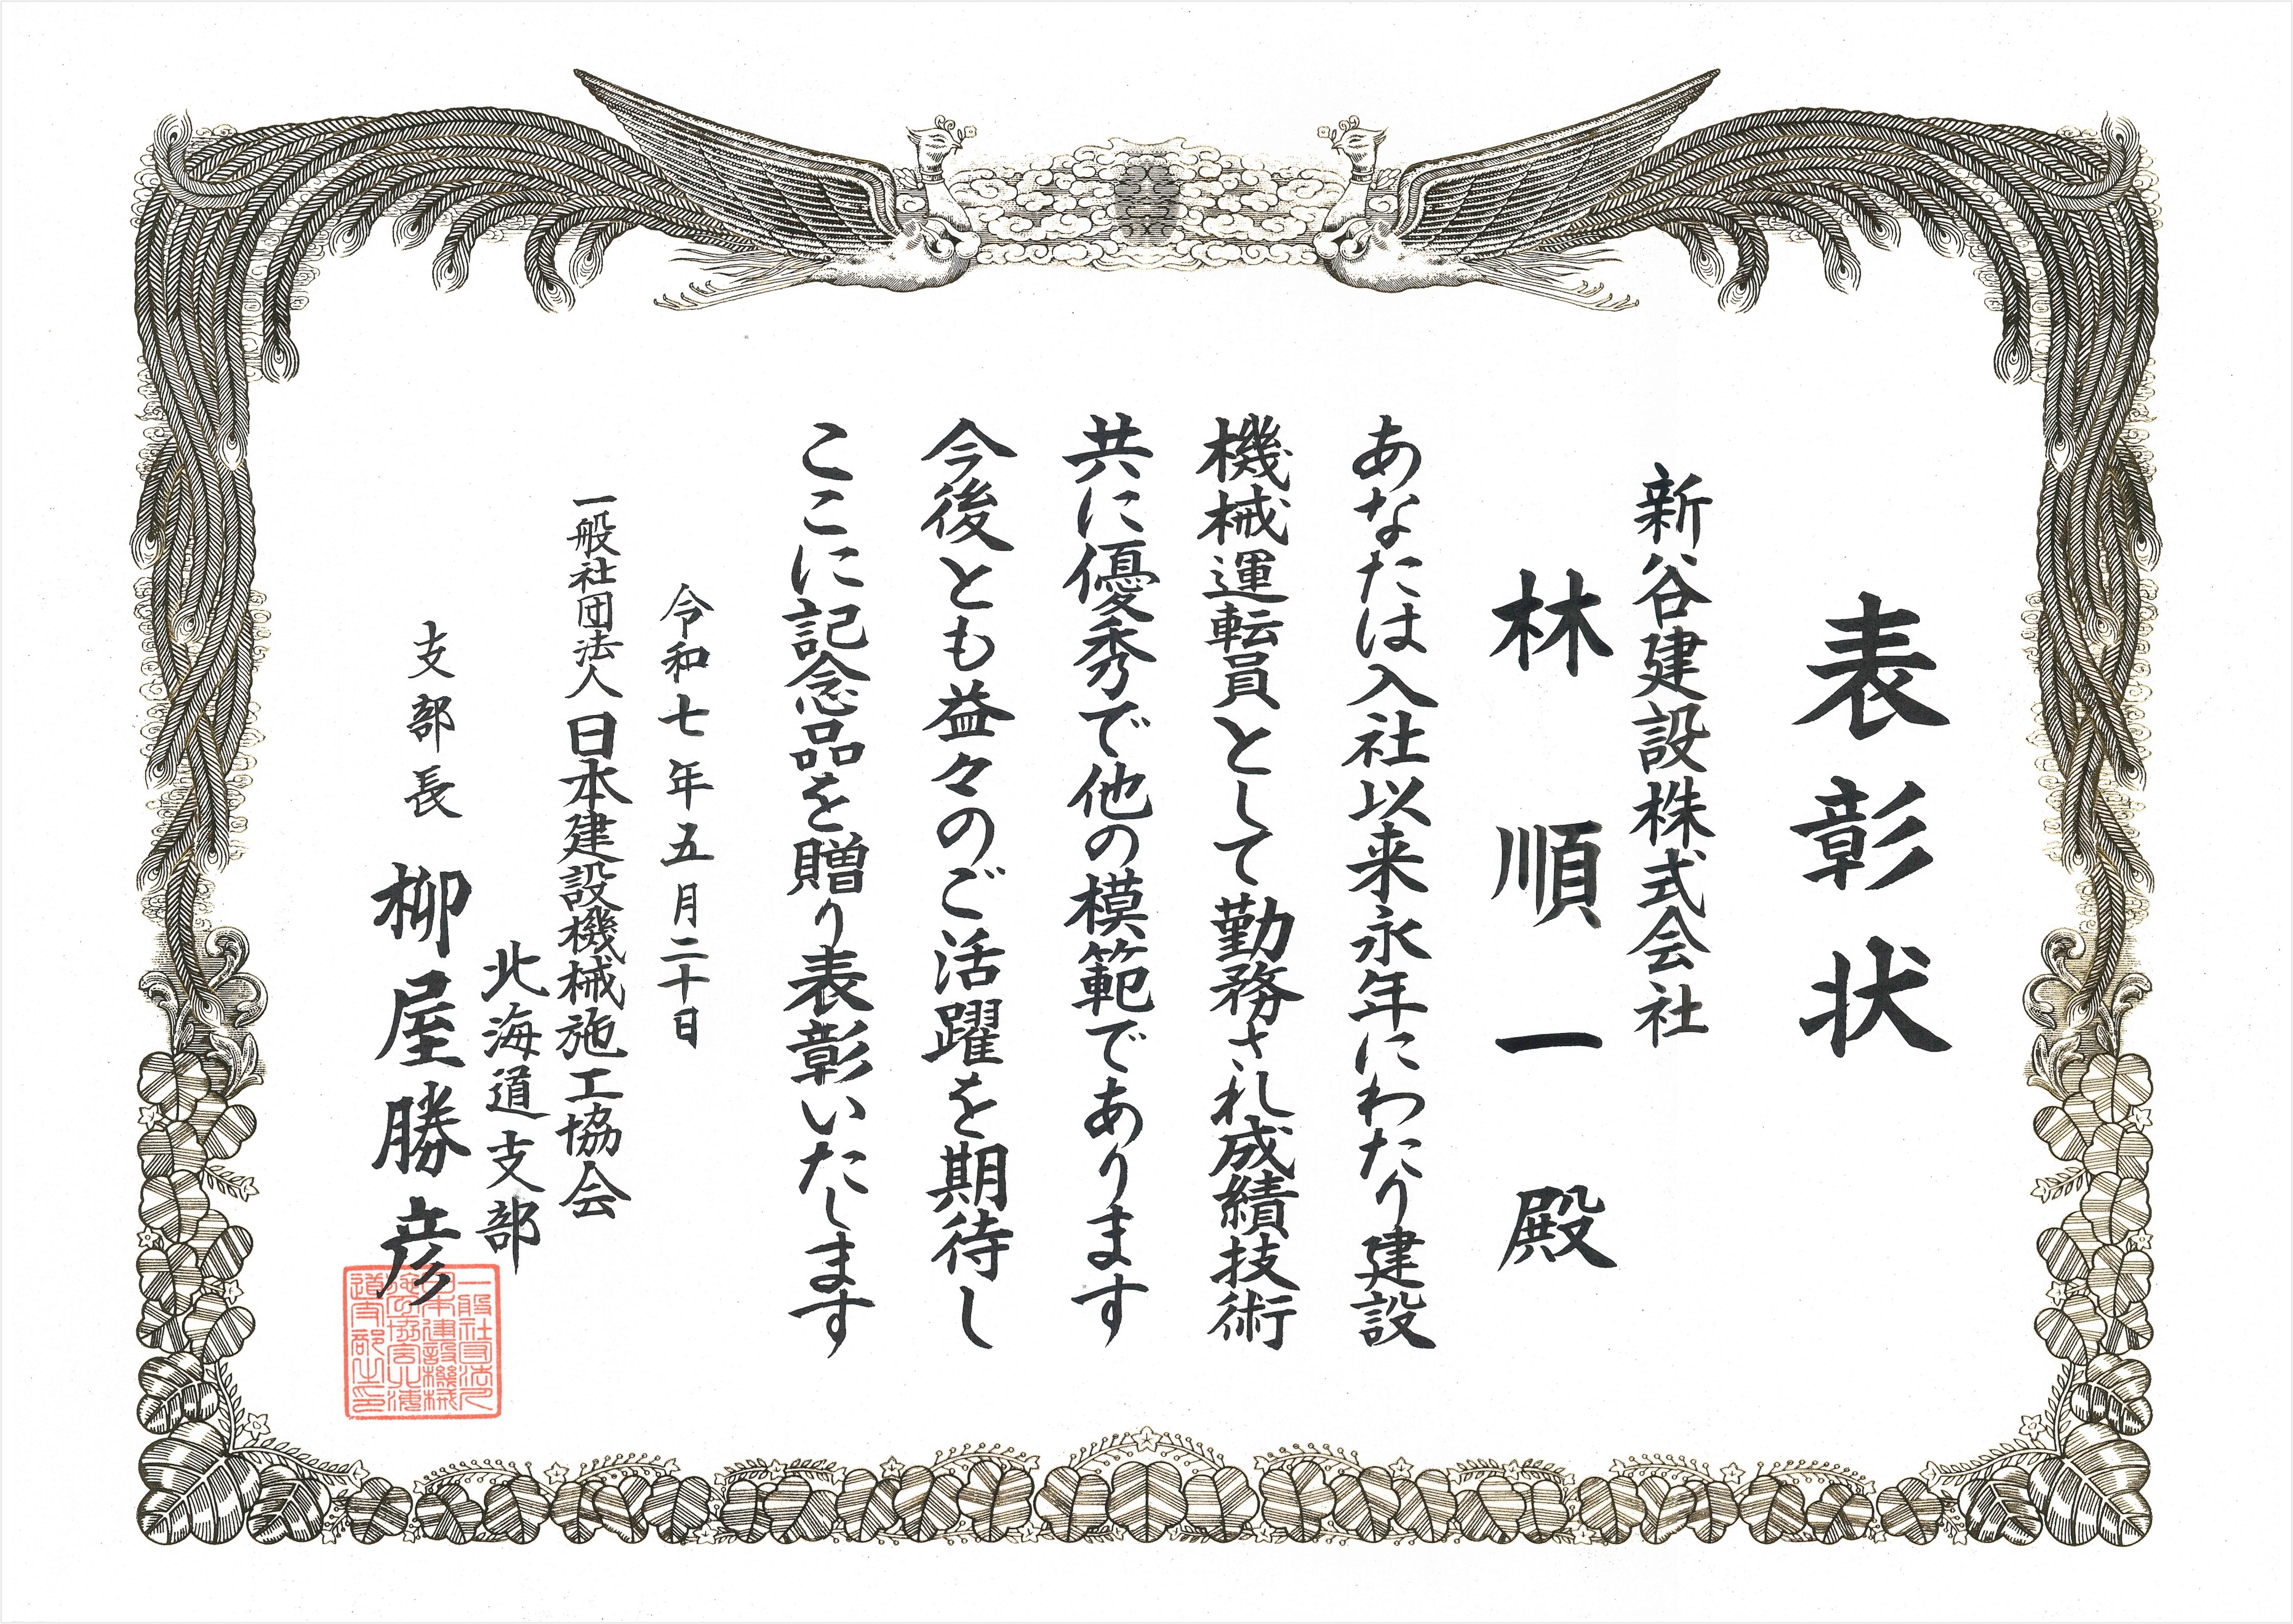 表彰状
新谷建設株式会社
林順一殿
あなたは入社以来永年にわたり建設
機械運転員として勤務され成績技術
共に優秀で他の模範であります
今後とも益々のご活躍を期待し
ここに記念品を贈り表彰いたします
令和七年五月二十日
一般社団法人日本建設機械施工協会
北海道支部
支部長 柳屋勝彦
一般社団法人
日本建設機械
施工協会北海
道支部之印